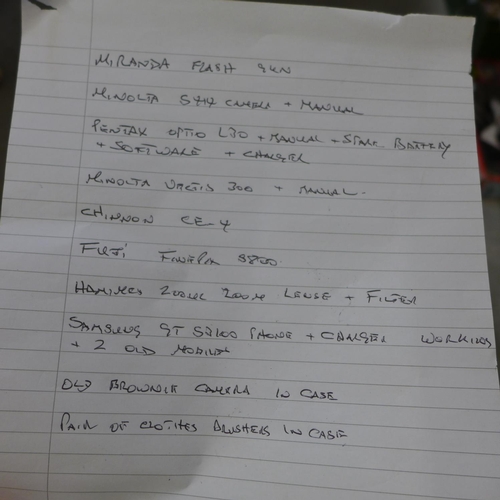 MIRANDA FLASH GUN
MINOLTA CAMERA + MANUAL
PENTAX OPTIO L30 + MANUAL + SPARE BATTERY
+ SOFTWARE + CHARGER
MINOLTA VECTIS 300 + MANUAL.
CHINNON CE-4
FUJI FINEPIX
HANIMEX ZOOM LENSE + FILTER
SAMSUNG GT PHONE + CHARGER WORKING
+ 2 OLD MOBILES
OLD BROWNIE CAMERA IN CASE
PAIR OF CLOTHES BRUSHERS IN CASE